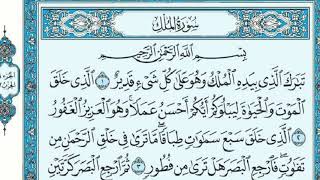 سُورَةُ المُلْكِ
بِسْمِ اللَّهِ الرَّحْمَٰنِ الرَّحِيمِ
تَبَٰرَكَ ٱلَّذِى بِيَدِهِ ٱلْمُلْكُ وَهُوَ عَلَىٰ كُلِّ شَىْءٍ قَدِيرٌ ١ ٱلَّذِى خَلَقَ
ٱلْمَوْتَ وَٱلْحَيَوٰةَ لِيَبْلُوَكُمْ أَيُّكُمْ أَحْسَنُ عَمَلًا وَهُوَ ٱلْعَزِيزُ ٱلْغَفُورُ
٢ ٱلَّذِى خَلَقَ سَبْعَ سَمَٰوَٰتٍ طِبَاقًا مَّا تَرَىٰ فِى خَلْقِ ٱلرَّحْمَٰنِ مِن
تَفَٰوُتٍ فَٱرْجِعِ ٱلْبَصَرَ هَلْ تَرَىٰ مِن فُطُورٍ ٣ ثُمَّ ٱرْجِعِ ٱلْبَصَرَ كَرَّتَيْنِ